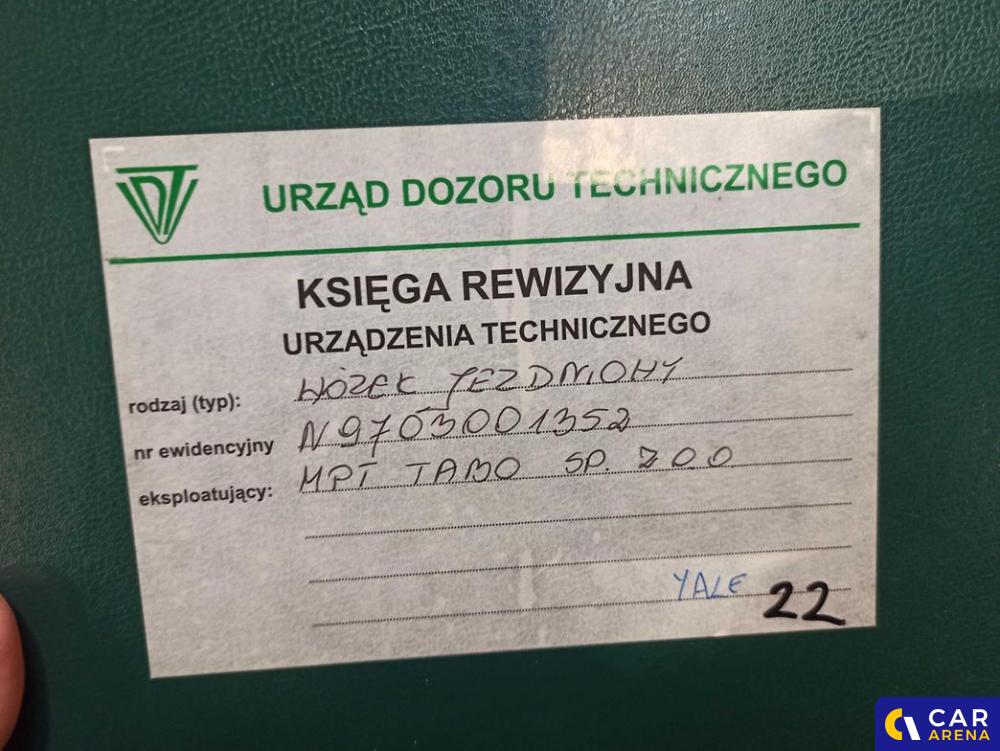 UDT
URZĄD DOZORU TECHNICZNEGO
KSIĘGA REWIZYJNA
URZĄDZENIA TECHNICZNEGO
rodzaj (typ): WÓZEK JEZDNIOWY
nr ewidencyjny N9703001352
eksploatujący: MPT TABO SP. Z O O
YALE 22
CAR
ARENA